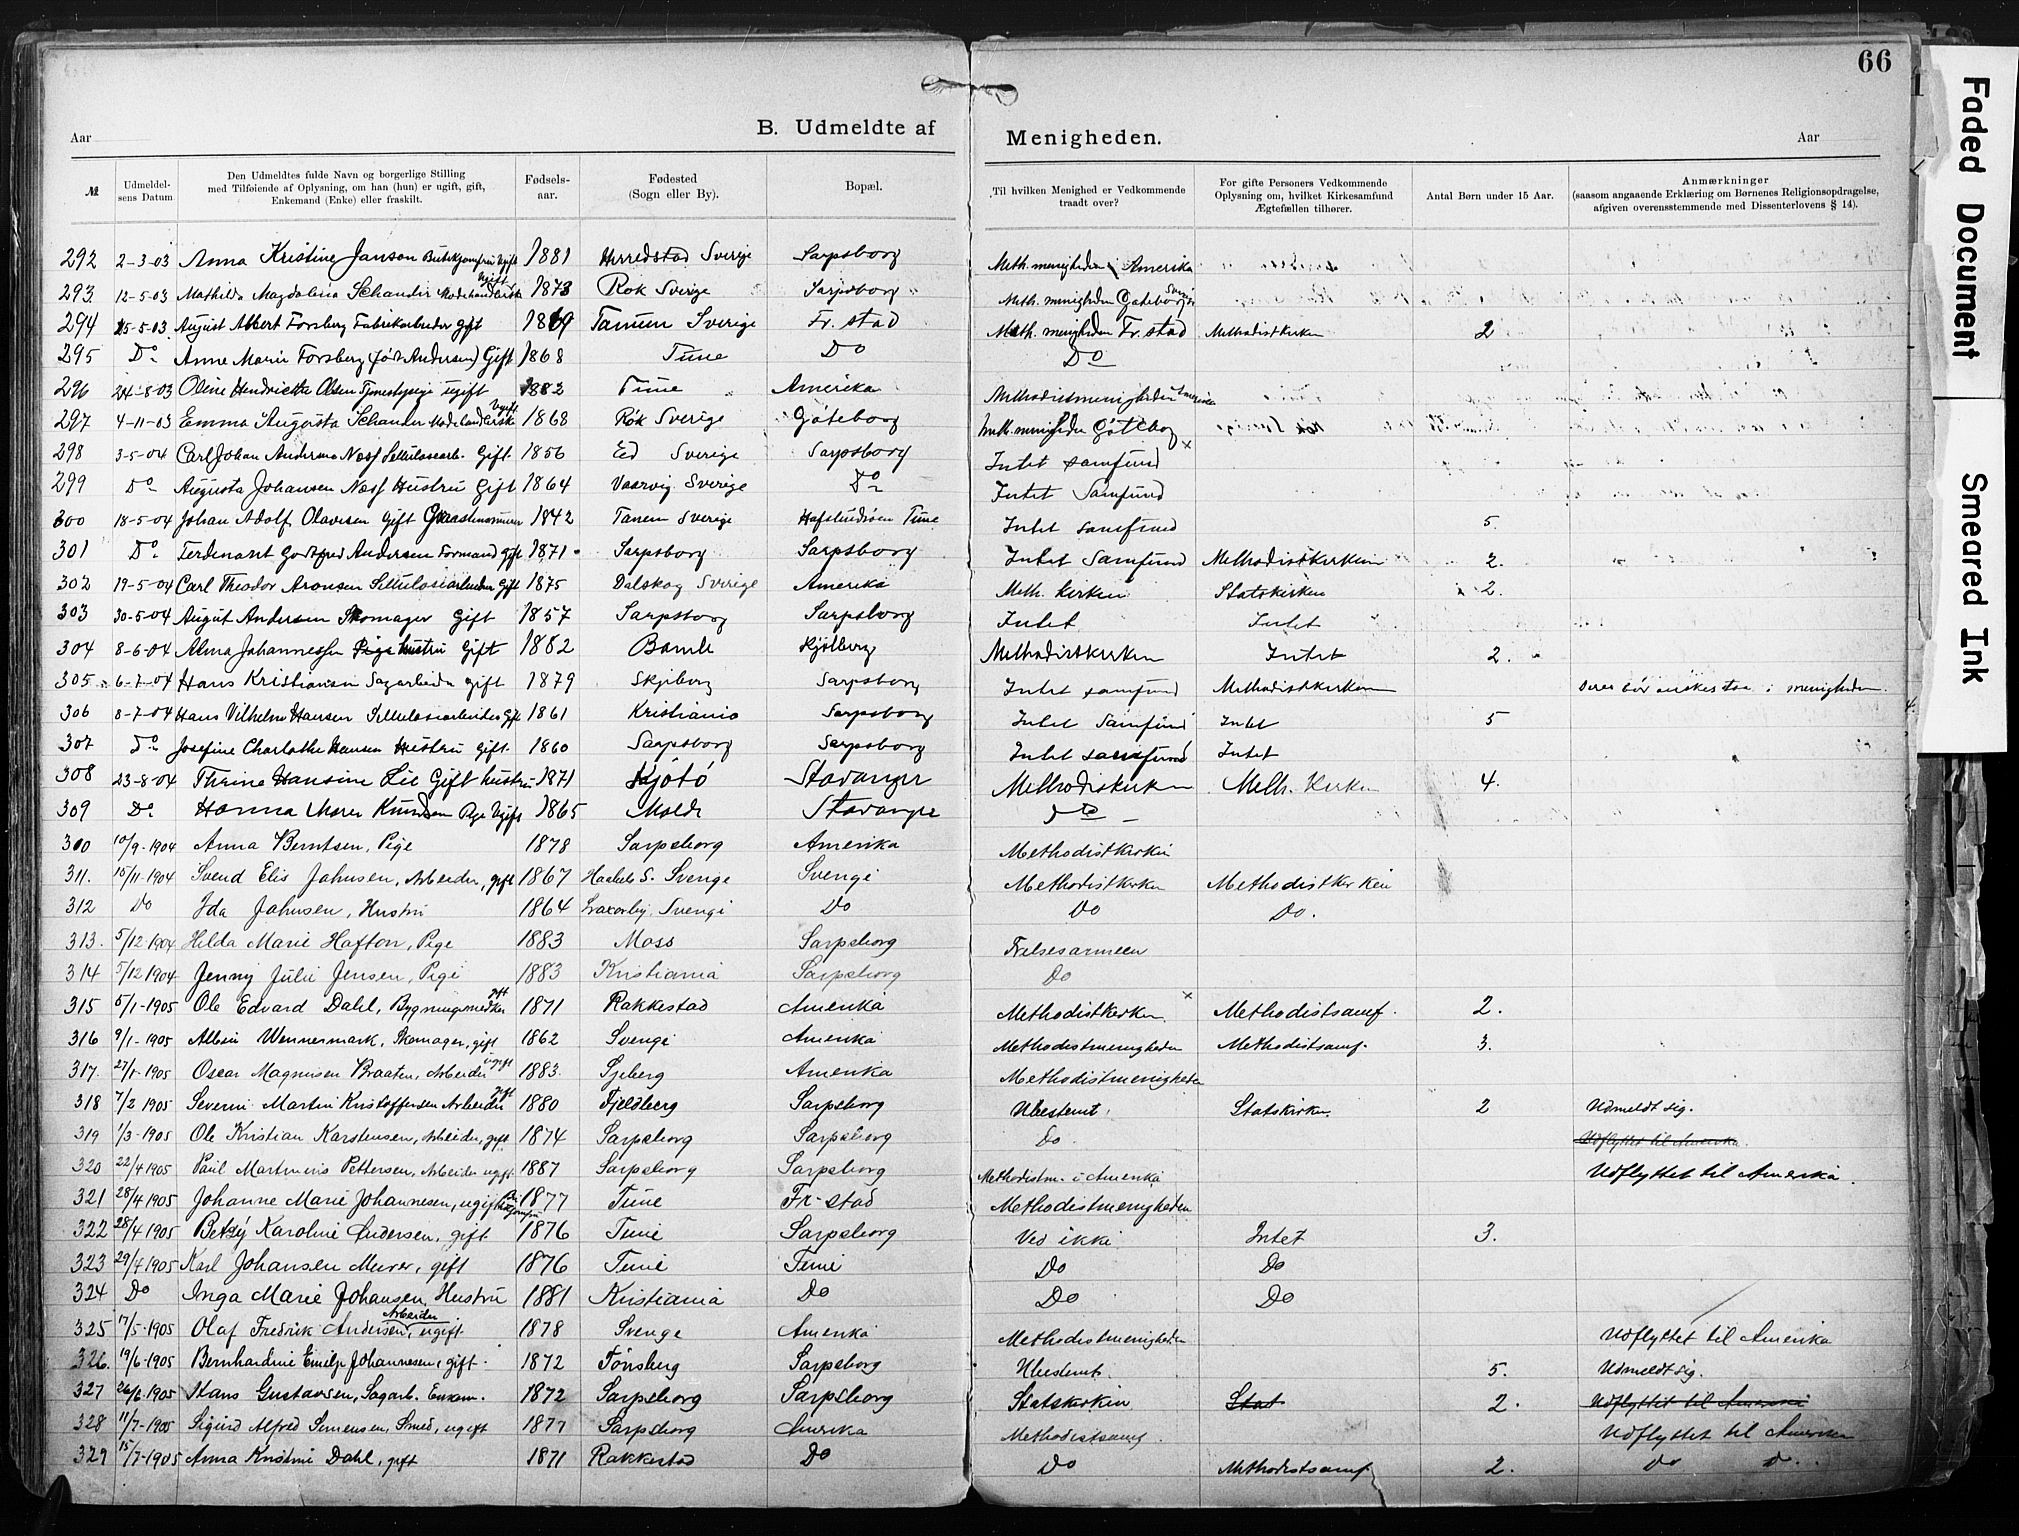 66
Faded Document
Smeared Ink
Aar
B. Udmeldte af Menigheden.
Aar
№ | Udmeldelsens Datum | Den Udmeldtes fulde Navn og borgerlige Stilling med Tilføiende af Oplysning, om han (hun) er ugift, gift, Enkemand (Enke) eller fraskilt. | Fødselsaar. | Fødested (Sogn eller By). | Bopæl. | Til hvilken Menighed er Vedkommende traadt over? | For gifte Personers Vedkommende Oplysning om, hvilket Kirkesamfund Ægtefællen tilhører. | Antal Børn under 15 Aar. | Anmærkninger (saasom angaaende Erklæring om Børnenes Religionsopdragelse, afgiven overensstemmende med Dissenterlovens § 14).
292 2-3-03 Anna Kristine Janson Butikjomfru Ugift 1881 Herredstad Sverige Sarpsborg Meth. menigheden Amerika
293 12-5-03 Mathilda Magdalina Schander Modehandlerske Ugift 1873 Rok Sverige Sarpsborg Meth. menigheden Gøteborg Sverige
294 25-5-03 August Albert Forsberg Fabrikarbeider gift 1869 Tanum Sverige Fr. stad Meth. menigheden Fr. stad Methodistkirken 2
295 Do Anne Marie Forsberg (født Andersen) Gift 1868 Tune Do Do
296 24-8-03 Oline Hendriette Olsen Tjenestepige ugift 1882 Tune Amerika Methodistmenigheden Amerika
297 4-11-03 Emma Augusta Schander Modehandlerske Ugift 1868 Rök Sverige Göteborg Meth. menigheden Göteborg
298 3-5-04 Carl Johan Anderson Næss Cellulosearb. Gift 1856 Ed Sverige Sarpsborg Intet samfund
299 Do Augusta Johansen Næss Hustru Gift 1864 Vaarvig Sverige Do Intet Samfund
300 18-5-04 Johan Adolf Olavesen Gift 1842 Tanem Sverige Hafslundsøen Tune Intet samfund 5
301 Do Ferdenant Godtfred Andersen Formand gift 1871 Sarpsborg Sarpsborg Intet Samfund Methodistkirken 2.
302 19-5-04 Carl Theodor Aronsen Sellulosearbeider Gift 1875 Dalskog Sverige Amerika Meth. kirken Statskirken 2.
303 30-5-04 August Andersen Skomager Gift 1857 Sarpsborg Sarpsborg Intet Intet
304 8-6-04 Alma Johannessen Pige hustru Gift 1882 Bamle Kjølberg Methodistkirken Intet 2.
305 6-7-04 Hans Kristiansen Sagarbeider gift 1879 Skjeberg Sarpsborg Intet samfund Methodistkirken menigheden
306 8-7-04 Hans Vilhelm Hansen Sellulosearbeider Gift 1861 Kristiania Sarpsborg Intet Samfund Intet 5
307 Do Josefine Charlothe Hansen Hustru gift 1860 Sarpsborg Sarpsborg Intet samfund Intet
308 23-8-04 Thrine Hansine Lie Gift hustru 1871 Kjötö Stavanger Methodiskirken Meth. Kirken 4.
309 Do Hanna Maren Knudsen Pige Ugift 1865 Molde Stavanger Do
300 10/9-1904 Anna Berntsen, Pige 1878 Sarpsborg Amerika Methodistkirken
311. 15/11-1904 Svend Elis Johnsen, Arbeider, gift 1867 Sverige Sverige Methodistkirken Methodistkirken
312 Do Ida Johnsen, Hustru 1864 Sverige Do Do Do.
313. 5/12 1904 Hilda Marie Hafton, Pige 1883 Moss Sarpsborg Frelsesarmeen
314 5/12 1904 Jenny Julie Jensen, Pige 1883 Kristiania Sarpsborg Do
315 5/1-1905 Ole Edvard Dahl, Bygningssnedker gift 1871 Rakkestad Amerika Methodistkirken Methodistsamf. 2.
316 9/1-1905 Albin Wennermark, Skomager, gift 1862 Sverige Amerika Methodistmenigheden Methodistsamf. 3.
317. 27/1-1905 Oscar Magnusen Braaten, Arbeider ugift 1883. Sjeberg Amerika Methodistmenigheden
318 7/2 1905 Severin Martin Kristoffersen Arbeider gift 1880 Fjeldberg Sarpsborg Ubestemt. Statskirken 2 Udmeldt sig.
319 1/3-1905 Ole Kristian Karstensen, Arbeider, gift 1874 Sarpsborg Sarpsborg Do. Udflyttet til Amerika.
320 22/4 1905 Paul Martinius Pettersen, Arbeider ugift 1887 Sarpsborg Sarpsborg Methodistm. i Amerika Udflyttet til Amerika.
321 28/4 1905 Johanne Marie Johannesen, ugift 1877 Tune Fr-stad Methodistmenigheden
322 28/4 1905 Betsy Karoline Andersen, gift 1876 Tune Sarpsborg Ved ikke Intet 3.
323 29/4 1905 Karl Johansen Murer, gift 1876 Tune Tune Do Do
324 Do Inga Marie Johansen, Hustru 1881 Kristiania Do Do Do
325 17/5-1905 Olaf Fredrik Andersen, Arbeider ugift 1878 Sverige Amerika Methodistmenigheden Udflyttet til Amerika
326. 19/6-1905 Bernhardine Emilje Johannesen, gift 1872 Tönsberg Sarpsborg Ubestemt. 5. Udmeldt sig.
327 26/6-1905 Hans Gustavsen, Sagarb. Enkem. 1872 Sarpsborg Sarpsborg Statskirken Stat 2. Udflyttet til Amerika
328 11/7-1905 Sigurd Alfred Simensen, Smed, ugift 1877 Sarpsborg Amerika Methodistsamf. Udflyttet til Amerika
329 15/7-1905 Anna Kristine Dahl, gift 1871 Rakkestad Do Do Methodistsamf 2. Do Do.